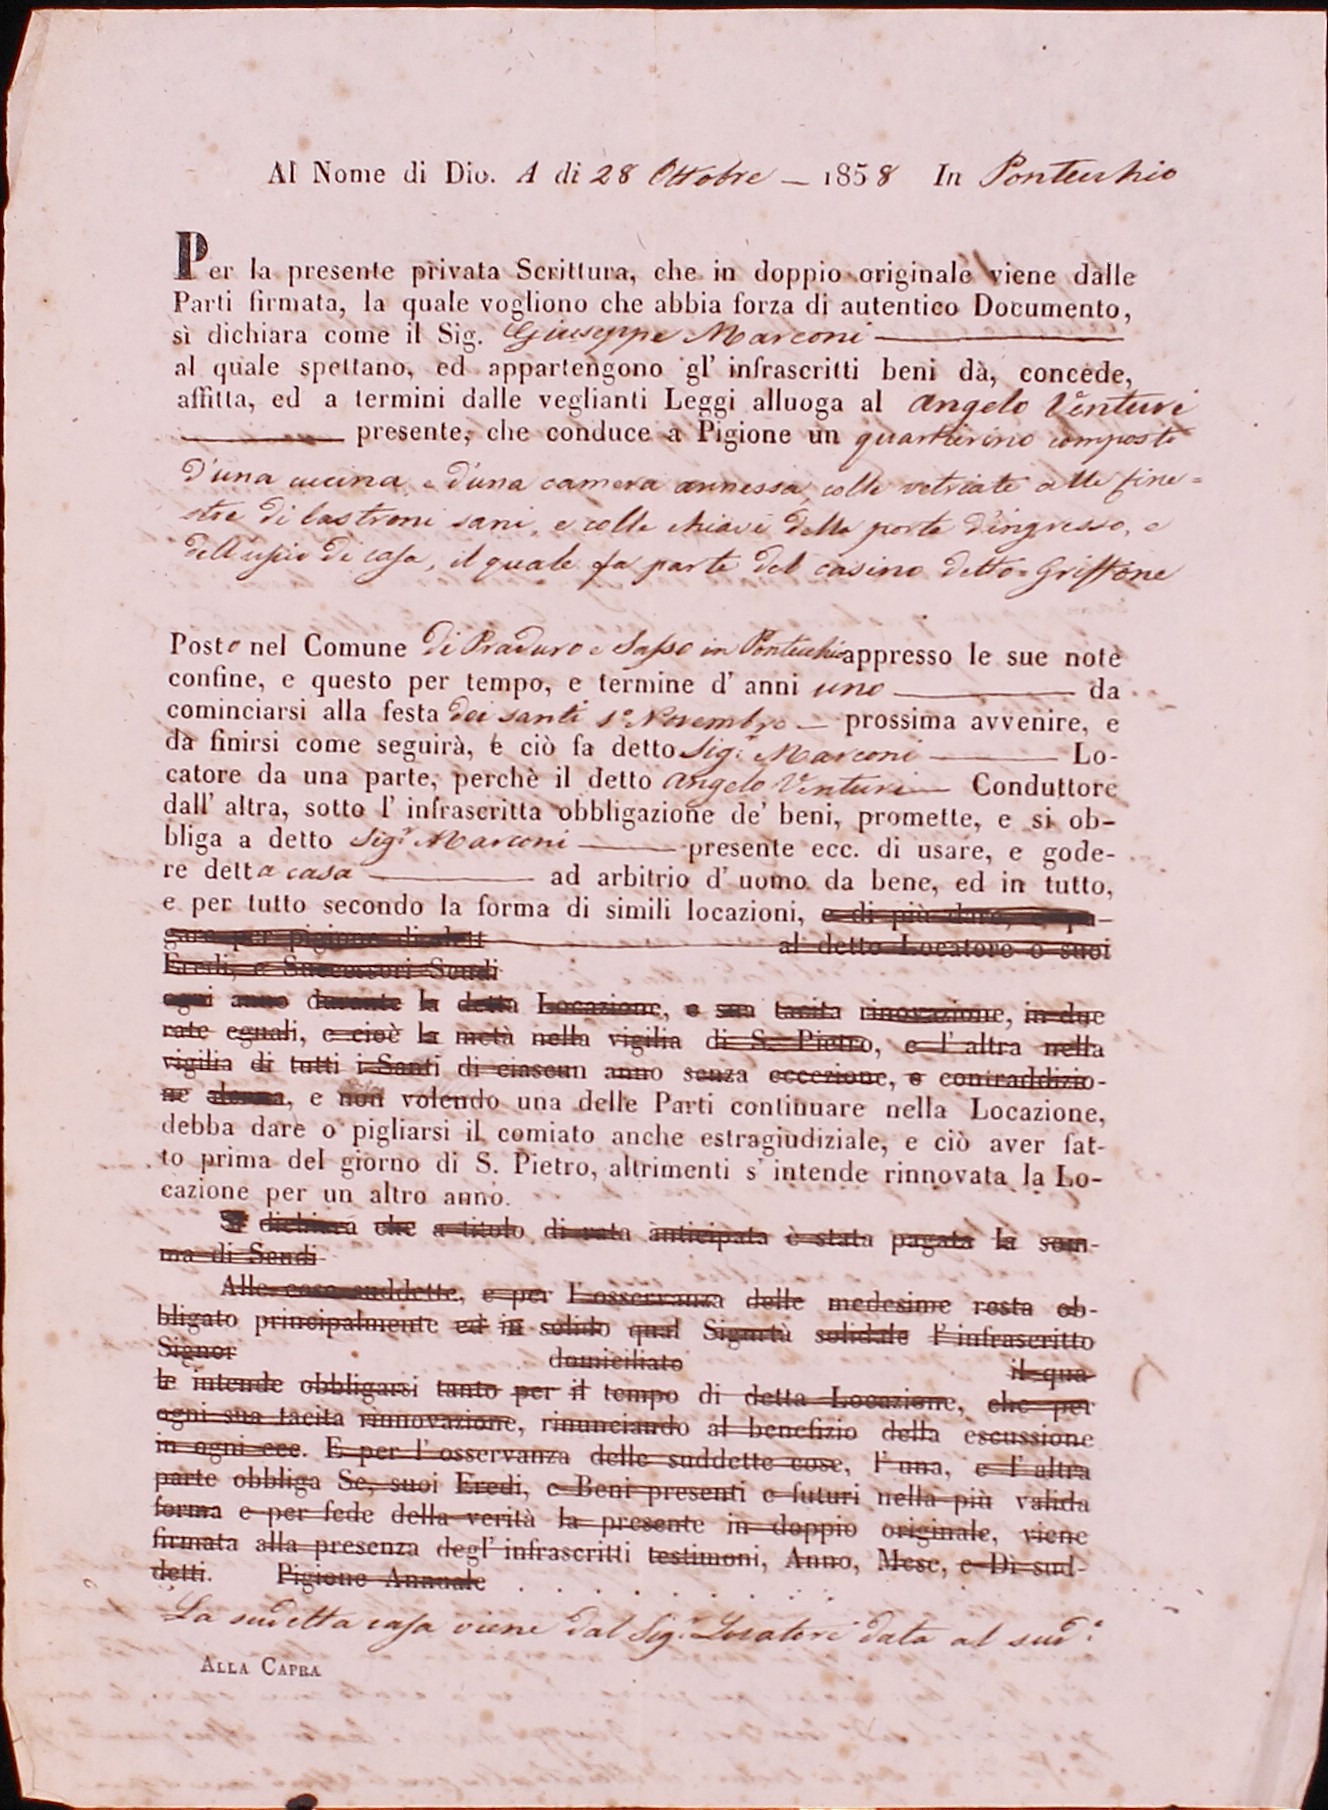 Al Nome di Dio. A di 28 Ottobre — 1858 In Pontecchio
Per la presente privata Scrittura, che in doppio originale viene dalle
Parti firmata, la quale vogliono che abbia forza di autentico Documento,
sì dichiara come il Sig. Giuseppe Marconi
al quale spettano, ed appartengono gl' infrascritti beni dà, concede,
affitta, ed a termini dalle veglianti Leggi alluoga al Angelo Venturi
presente, che conduce a Pigione un quartierino composto
d'una cucina, e d'una camera annessa, colle vetriate alle fine=
stre di lastroni sani, e colle chiavi della porta d'ingresso, e
dell'uscio di casa, il quale fa parte del casino detto Griffone
Posto nel Comune di Praduro e Sasso in Pontecchio appresso le sue note
confine, e questo per tempo, e termine d' anni uno — da
cominciarsi alla festa dei santi 1° Novembre — prossima avvenire, e
da finirsi come seguirà, e ciò fa detto Sig.r Marconi — Lo-
catore da una parte, perchè il detto Angelo Venturi — Conduttore
dall' altra, sotto l' infrascritta obbligazione de' beni, promette, e si ob-
bliga a detto Sig.r Marconi — presente ecc. di usare, e gode-
re detta casa — ad arbitrio d' uomo da bene, ed in tutto,
e per tutto secondo la forma di simili locazioni, e di più dare, e pa-
gare per pigione di dett al detto Locatore o suoi
Eredi, e Successori Scudi
ogni anno durante la detta Locazione, e sua tacita rinovazione, in due
rate eguali, e cioè la metà nella vigilia di S. Pietro, e l' altra nella
vigilia di tutti i Santi di ciascun anno senza eccezione, e contraddizio-
ne alcuna, e non volendo una delle Parti continuare nella Locazione,
debba dare o pigliarsi il comiato anche estragiudiziale, e ciò aver fat-
to prima del giorno di S. Pietro, altrimenti s' intende rinnovata la Lo-
cazione per un altro anno.
Si dichiara che a titolo di rata anticipata è stata pagata la som-
ma di Scudi
Alle cose suddette, e per l' osservanza delle medesime resta ob-
bligato principalmente ed in solido qual Sigurtà solidale l' infrascritto
Signor domiciliato il qua-
le intende obbligarsi tanto per il tempo di detta Locazione, che per
ogni sua tacita rinnovazione, rinunciando al benefizio della escussione
in ogni ecc. E per l' osservanza delle suddette cose, l' una, e l' altra
parte obbliga Se, suoi Eredi, e Beni presenti e futuri nella più valida
forma e per fede della verità la presente in doppio originale, viene
firmata alla presenza degl' infrascritti testimoni, Anno, Mese, e Dì sud-
detti. Pigione Annuale . . . . . . . . .
La sudetta casa viene dal Sig.r Locatore data al sud.°
ALLA CAPRA